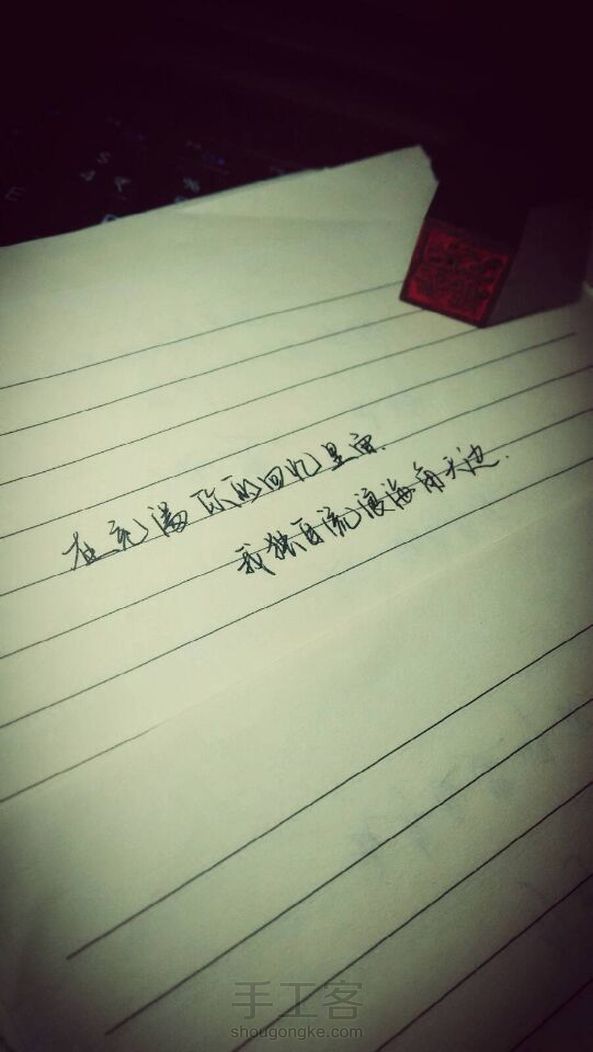 在充满你的回忆里面.
我独自流浪海角天边.
手工客
shougongke.com